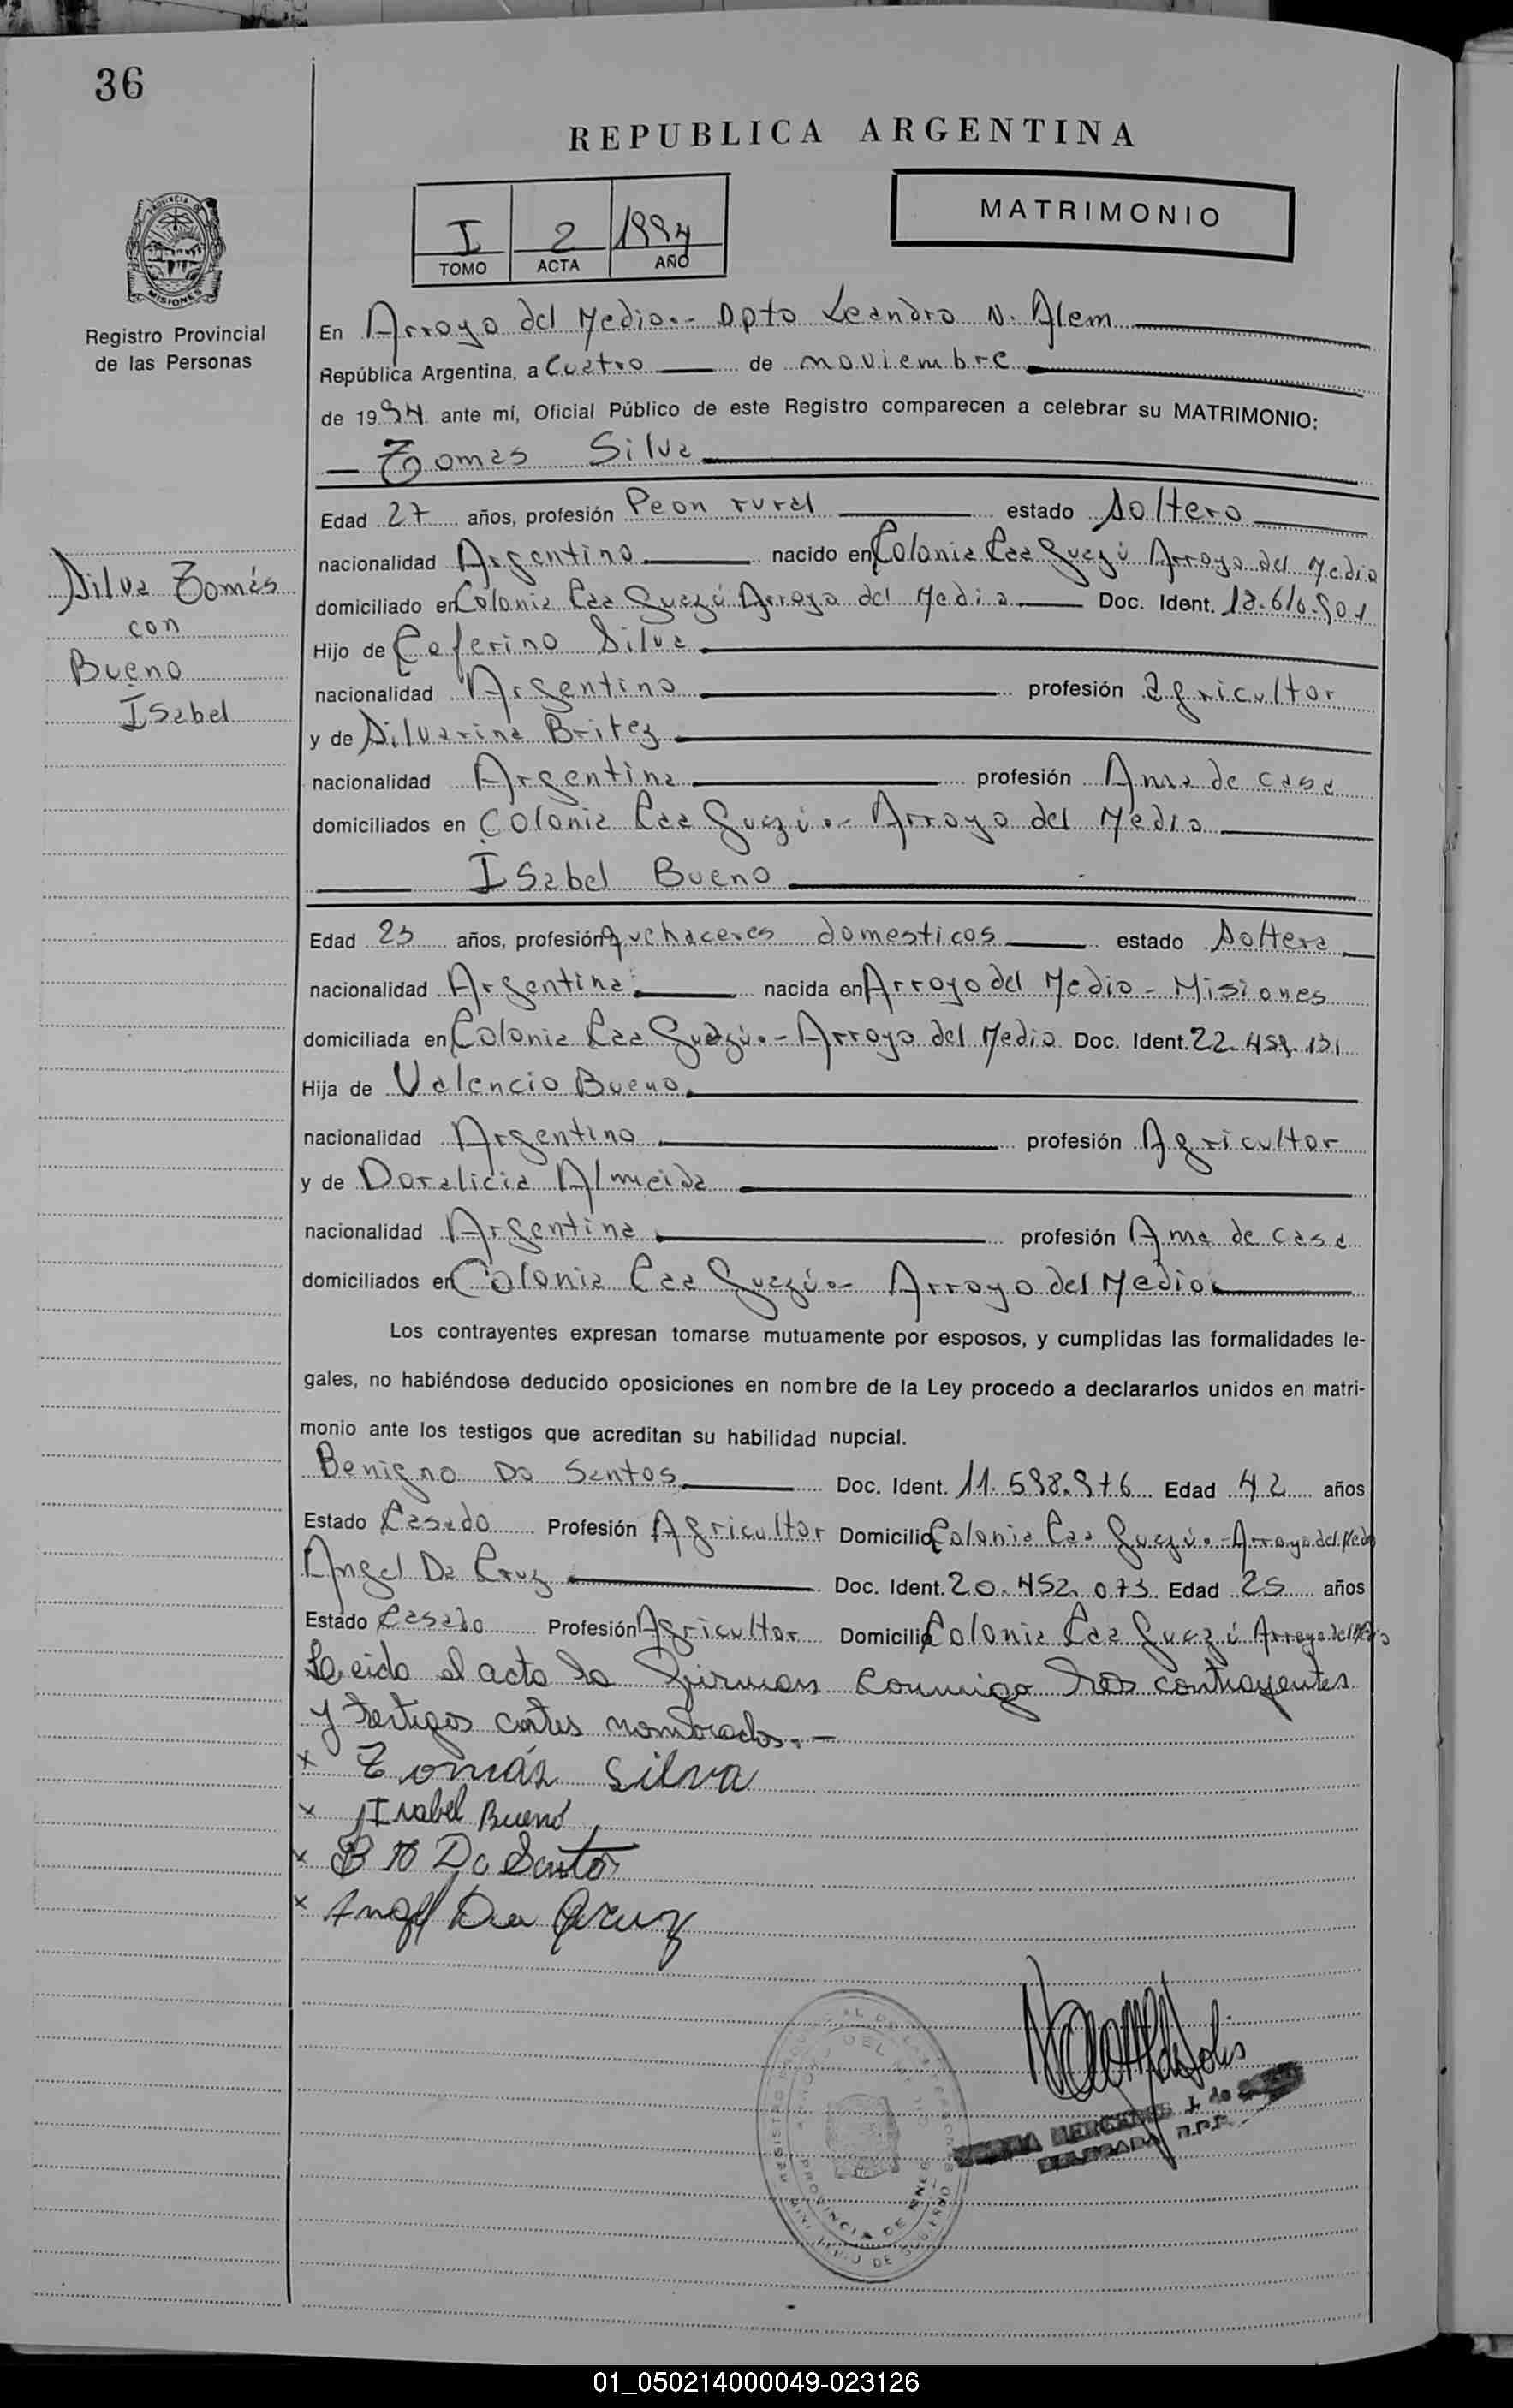 36
REPUBLICA ARGENTINA
MATRIMONIO
I 2 1994
TOMO ACTA AÑO
PROVINCIA DE
MISIONES
Registro Provincial
de las Personas
En Arroyo del Medio.- Dpto Leandro N. Alem
República Argentina, a Cuatro de noviembre
de 1994 ante mí, Oficial Público de este Registro comparecen a celebrar su MATRIMONIO:
Tomas Silva
Edad 27 años, profesión Peon rural estado Soltero
nacionalidad Argentino nacido en Colonia Caa Guazú Arroyo del Medio
domiciliado en Colonia Caa Guazú Arroyo del Medio Doc. Ident. 18.616.901
Hijo de Ceferino Silva
nacionalidad Argentino profesión agricultor
y de Silvarina Britez
nacionalidad Argentina profesión Ama de casa
domiciliados en Colonia Caa Guazú.- Arroyo del Medio
Isabel Bueno
Silva Tomás
con
Bueno
Isabel
Edad 23 años, profesión quehaceres domesticos estado Soltera
nacionalidad Argentina nacida en Arroyo del Medio - Misiones
domiciliada en Colonia Caa Guazú.- Arroyo del Medio Doc. Ident. 22.459.131
Hija de Valencio Bueno
nacionalidad Argentino profesión Agricultor
y de Doralicia Almeida
nacionalidad Argentina profesión Ama de casa
domiciliados en Colonia Caa Guazú.- Arroyo del Medio
Los contrayentes expresan tomarse mutuamente por esposos, y cumplidas las formalidades le-
gales, no habiéndose deducido oposiciones en nombre de la Ley procedo a declararlos unidos en matri-
monio ante los testigos que acreditan su habilidad nupcial.
Benigno Do Santos Doc. Ident. 11.598.976 Edad 42 años
Estado Casado Profesión Agricultor Domicilio Colonia Caa Guazú.- Arroyo del Medio
Angel Da Cruz Doc. Ident. 20.452.073 Edad 25 años
Estado Casado Profesión Agricultor Domicilio Colonia Caa Guazú Arroyo del Medio
Leida el acta la firman conmigo los contrayentes
y testigos antes nombrados.-
x Tomás Silva
x Isabel Bueno
x Do Santos
x Angel Da Cruz
PROVINCIA DE
DELEGADA R.P.P.
01_050214000049-023126